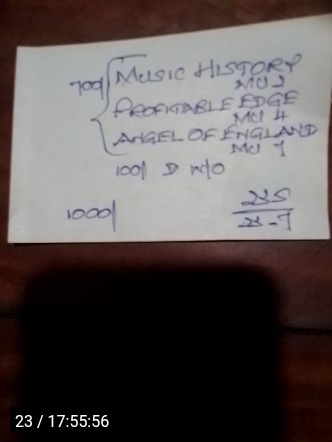 700/ MUSIC HISTORY
MU 2
PROFITABLE EDGE
MU 4
ANGEL OF ENGLAND
MU 7
100/ D W/O
1000/ 235
23-7
23 / 17:55:56